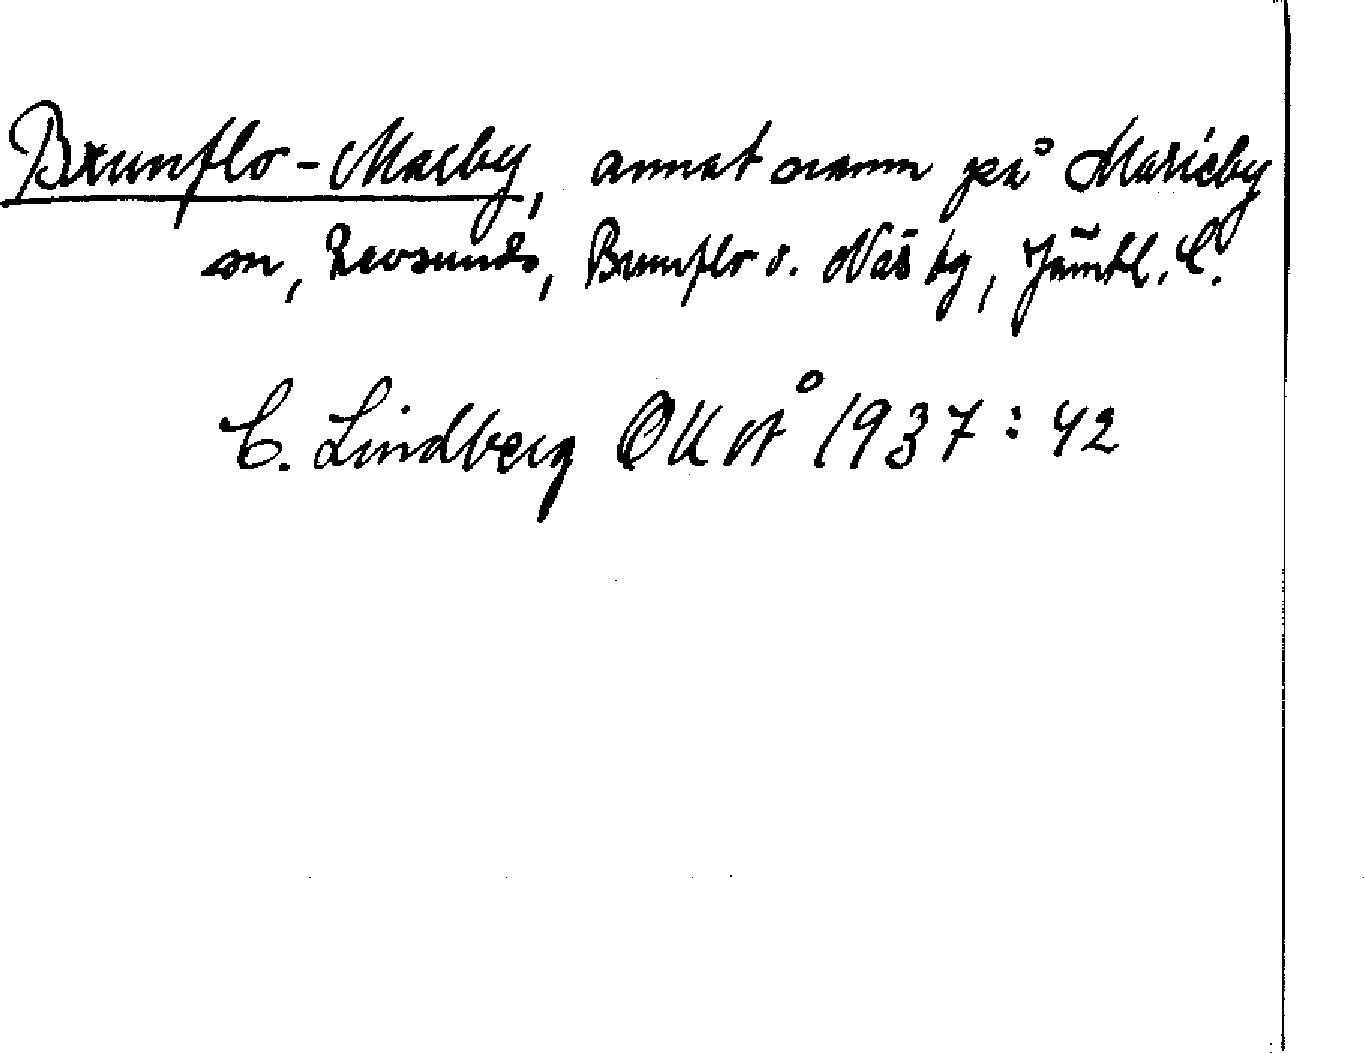 Brunflo-Maeby, annat namn på Marieby
sn, Revsunds, Brunflo o. Näs tg, Jämtl. l.
C. Lindberg OKvÅ 1937:42